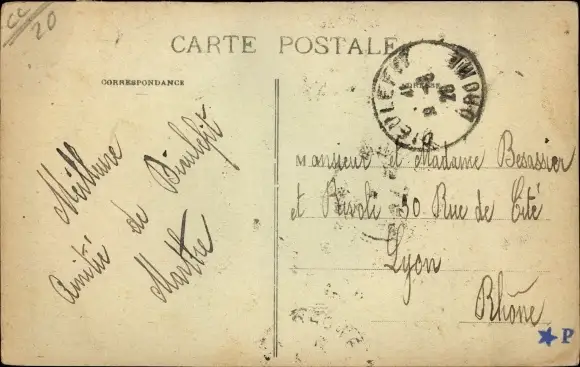 CC
20
CARTE POSTALE
CORRESPONDANCE
ADRESSE
DIEULEFIT
DROME
Meilleure
amitié de Dieulefit
Marthe
Monsieur et Madame Besassier
et Rivoli 50 Rue de Cité
Lyon
Rhône
P